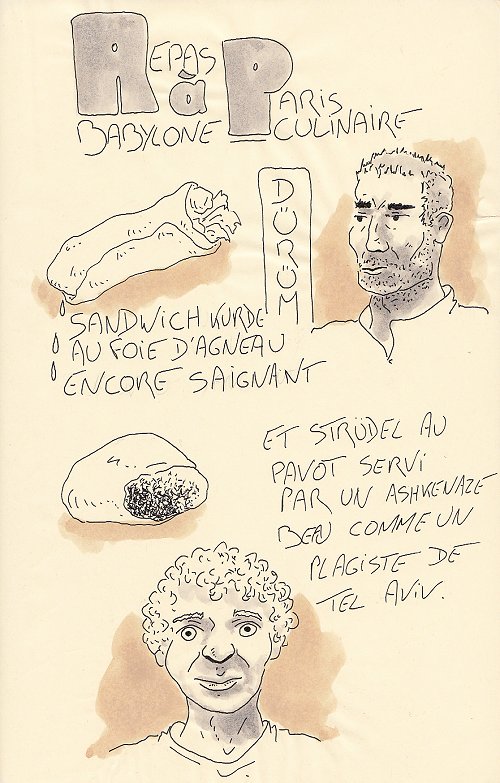 REPAS
à PARIS
BABYLONE CULINAIRE
DÜRÜM
SANDWICH KURDE
AU FOIE D'AGNEAU
ENCORE SAIGNANT
ET STRÜDEL AU
PAVOT SERVI
PAR UN ASHKENAZE
BEAU COMME UN
PLAGISTE DE
TEL AVIV.